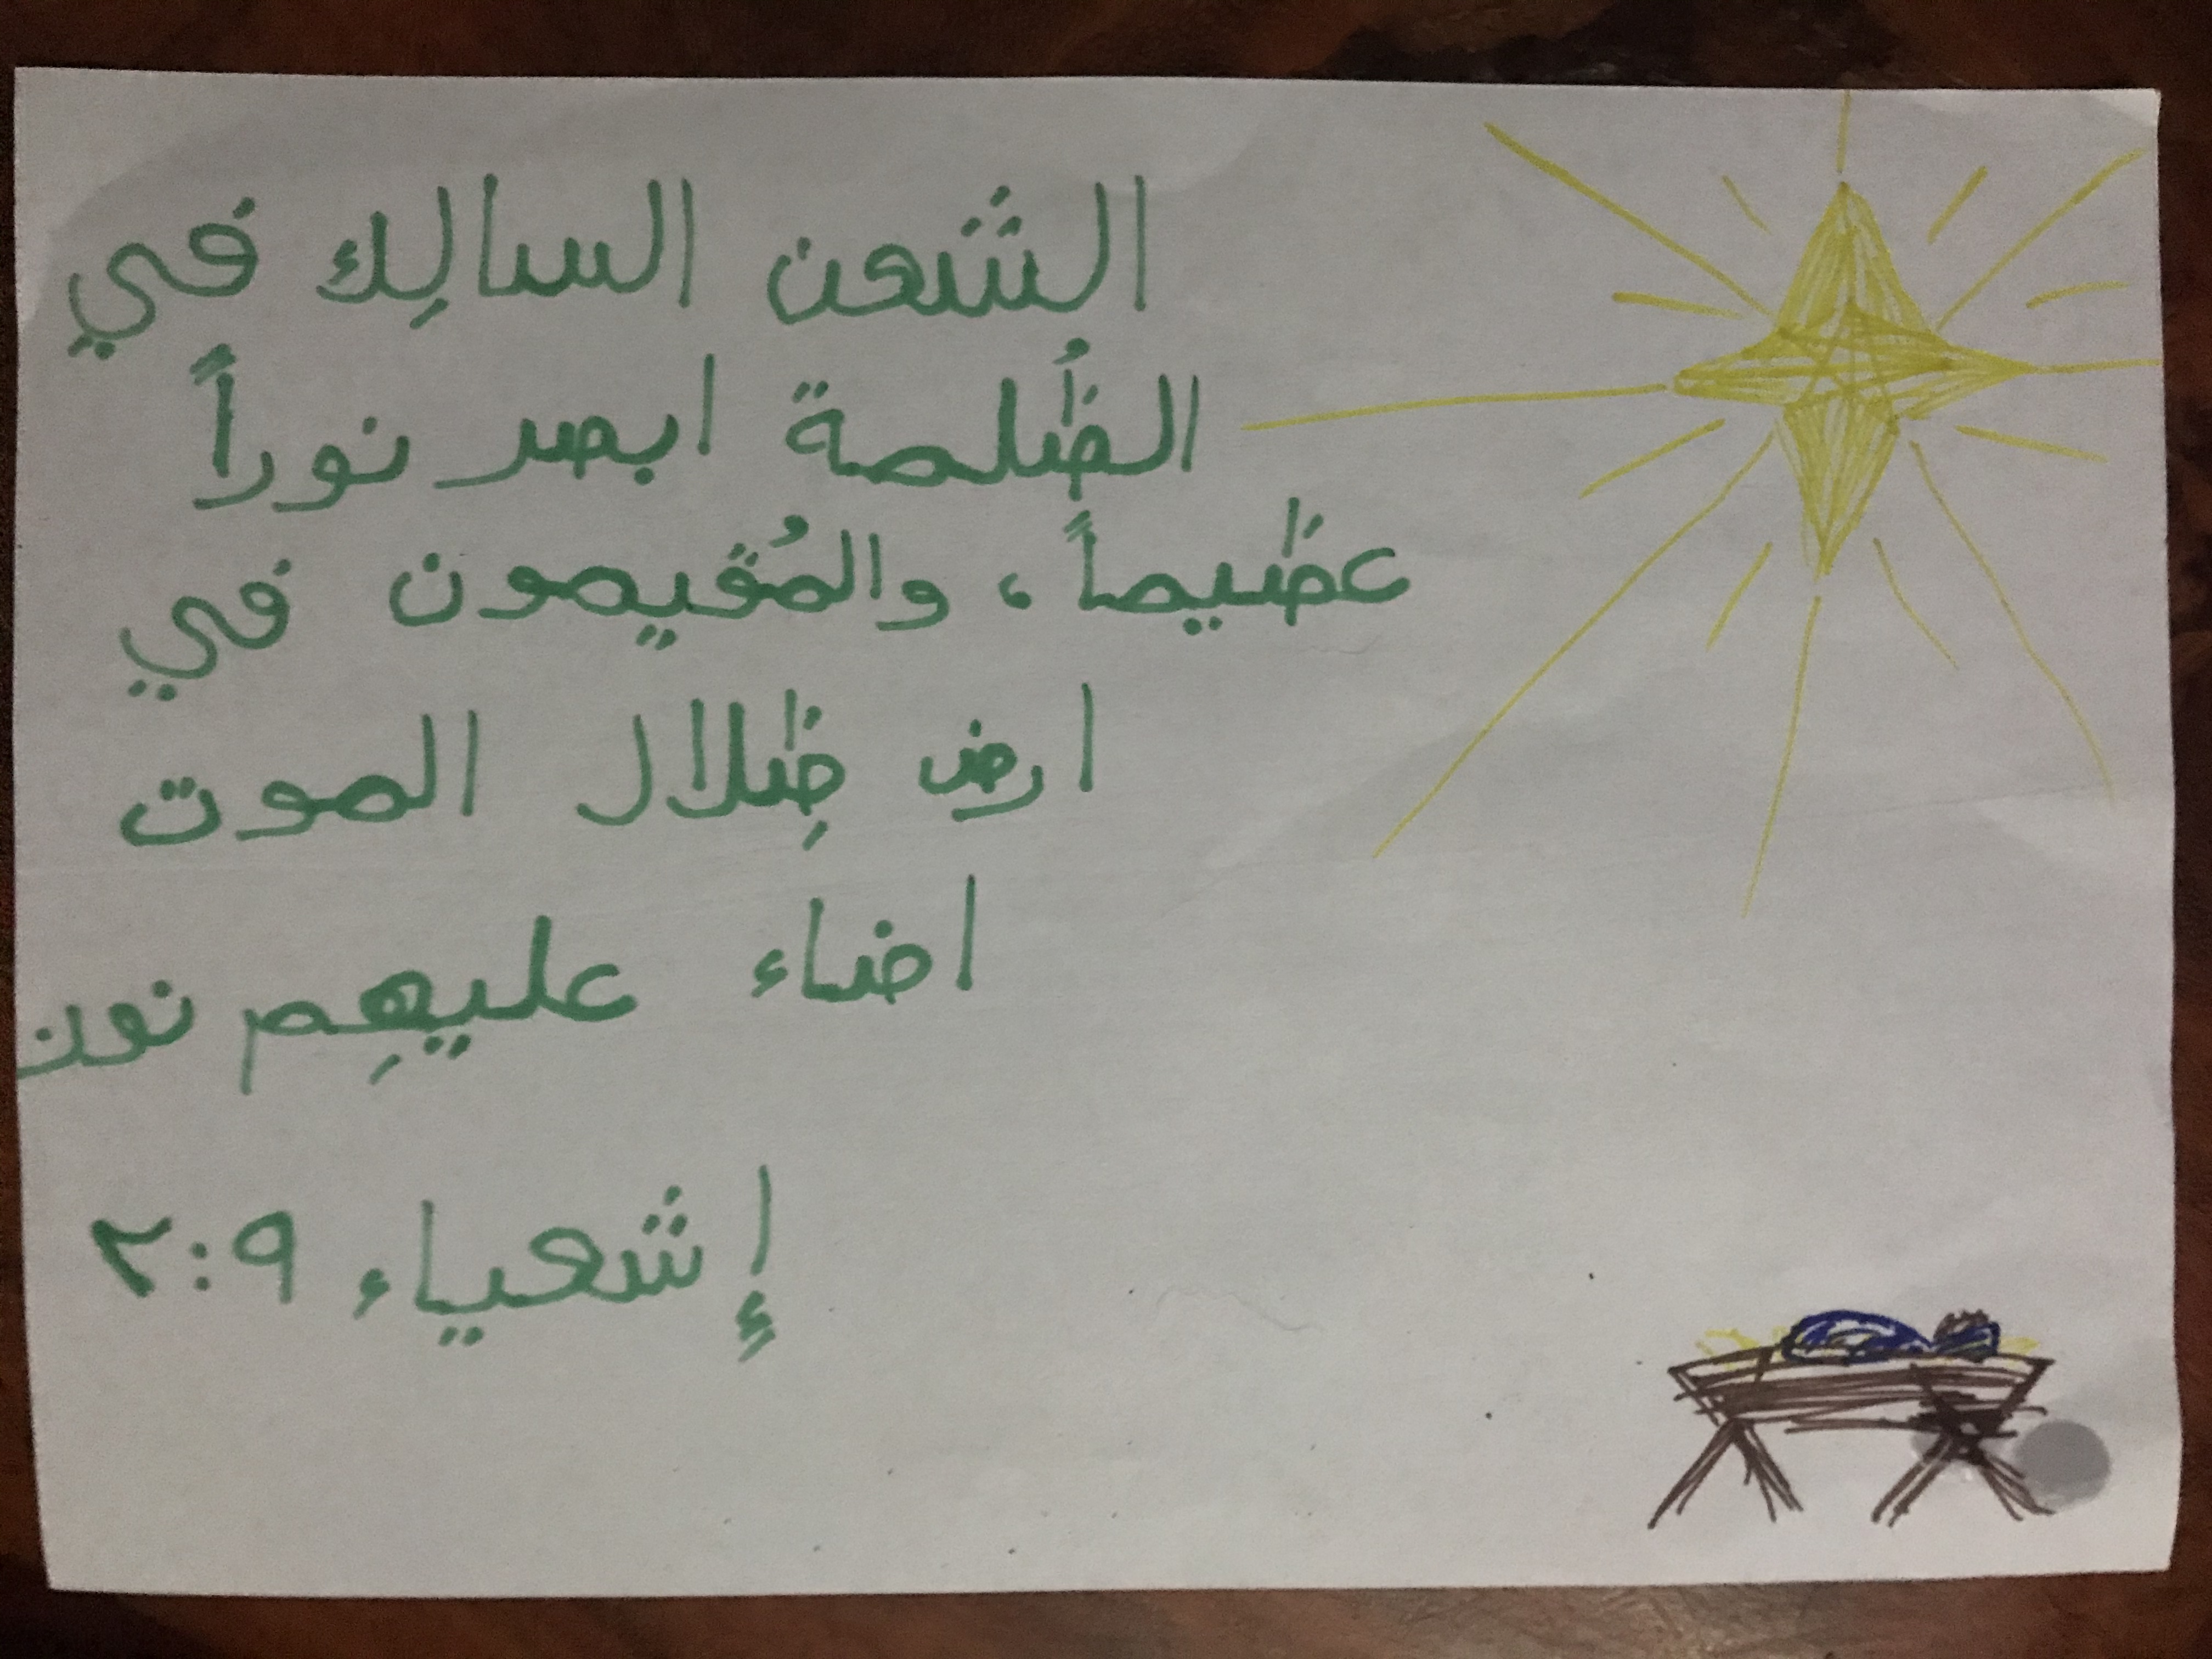 الشعن السالِك في
الظُلمة ابصر نوراً
عظيماً، والمُقيمون في
ارض ظِلال الموت
اضاء عليهِم نور
إشعياء ٩:٢